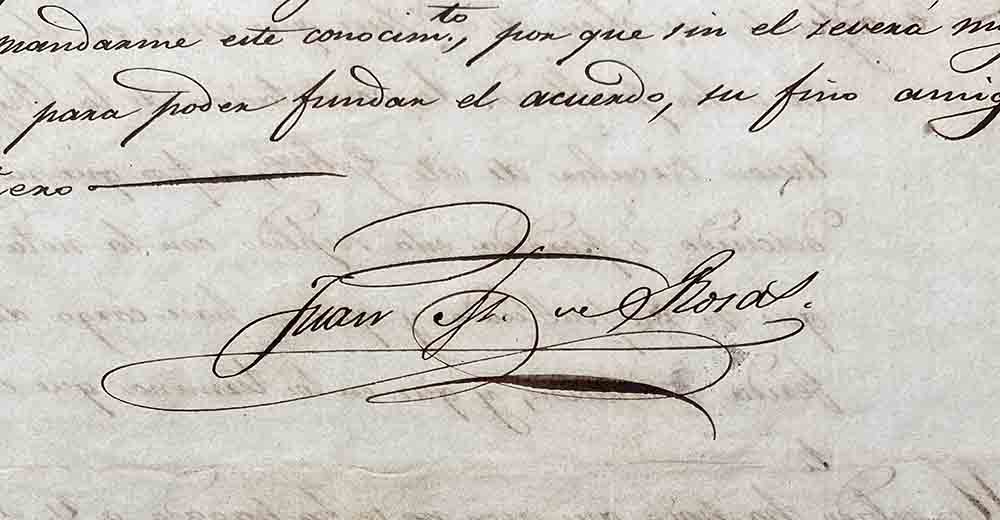 mandarme este conocim.to, por que sin el severá
para poder fundar el acuerdo, su fino amig
Juan M. de Rosas.